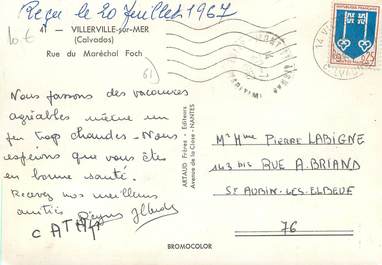 Reçu le 20 juillet 1967
10 €
41 — VILLERVILLE-sur-MER
(Calvados)
Rue du Maréchal Foch
61
Nous passons des vacances
agréables même un
peu trop chaudes - Nous
espérons que vous êtes
en bonne santé.
Recevez nos meilleurs
amitiés
CATHY
ARTAUD Frères - Editeurs
Avenue de la Close - NANTES
REPUBLIQUE FRANÇAISE
0,25
14 V
CALVADOS
Mr Mme PIERRE LABIGNE
143 bis RUE A. BRIAND
ST AUBIN-LES-ELBEUF
76
BROMOCOLOR